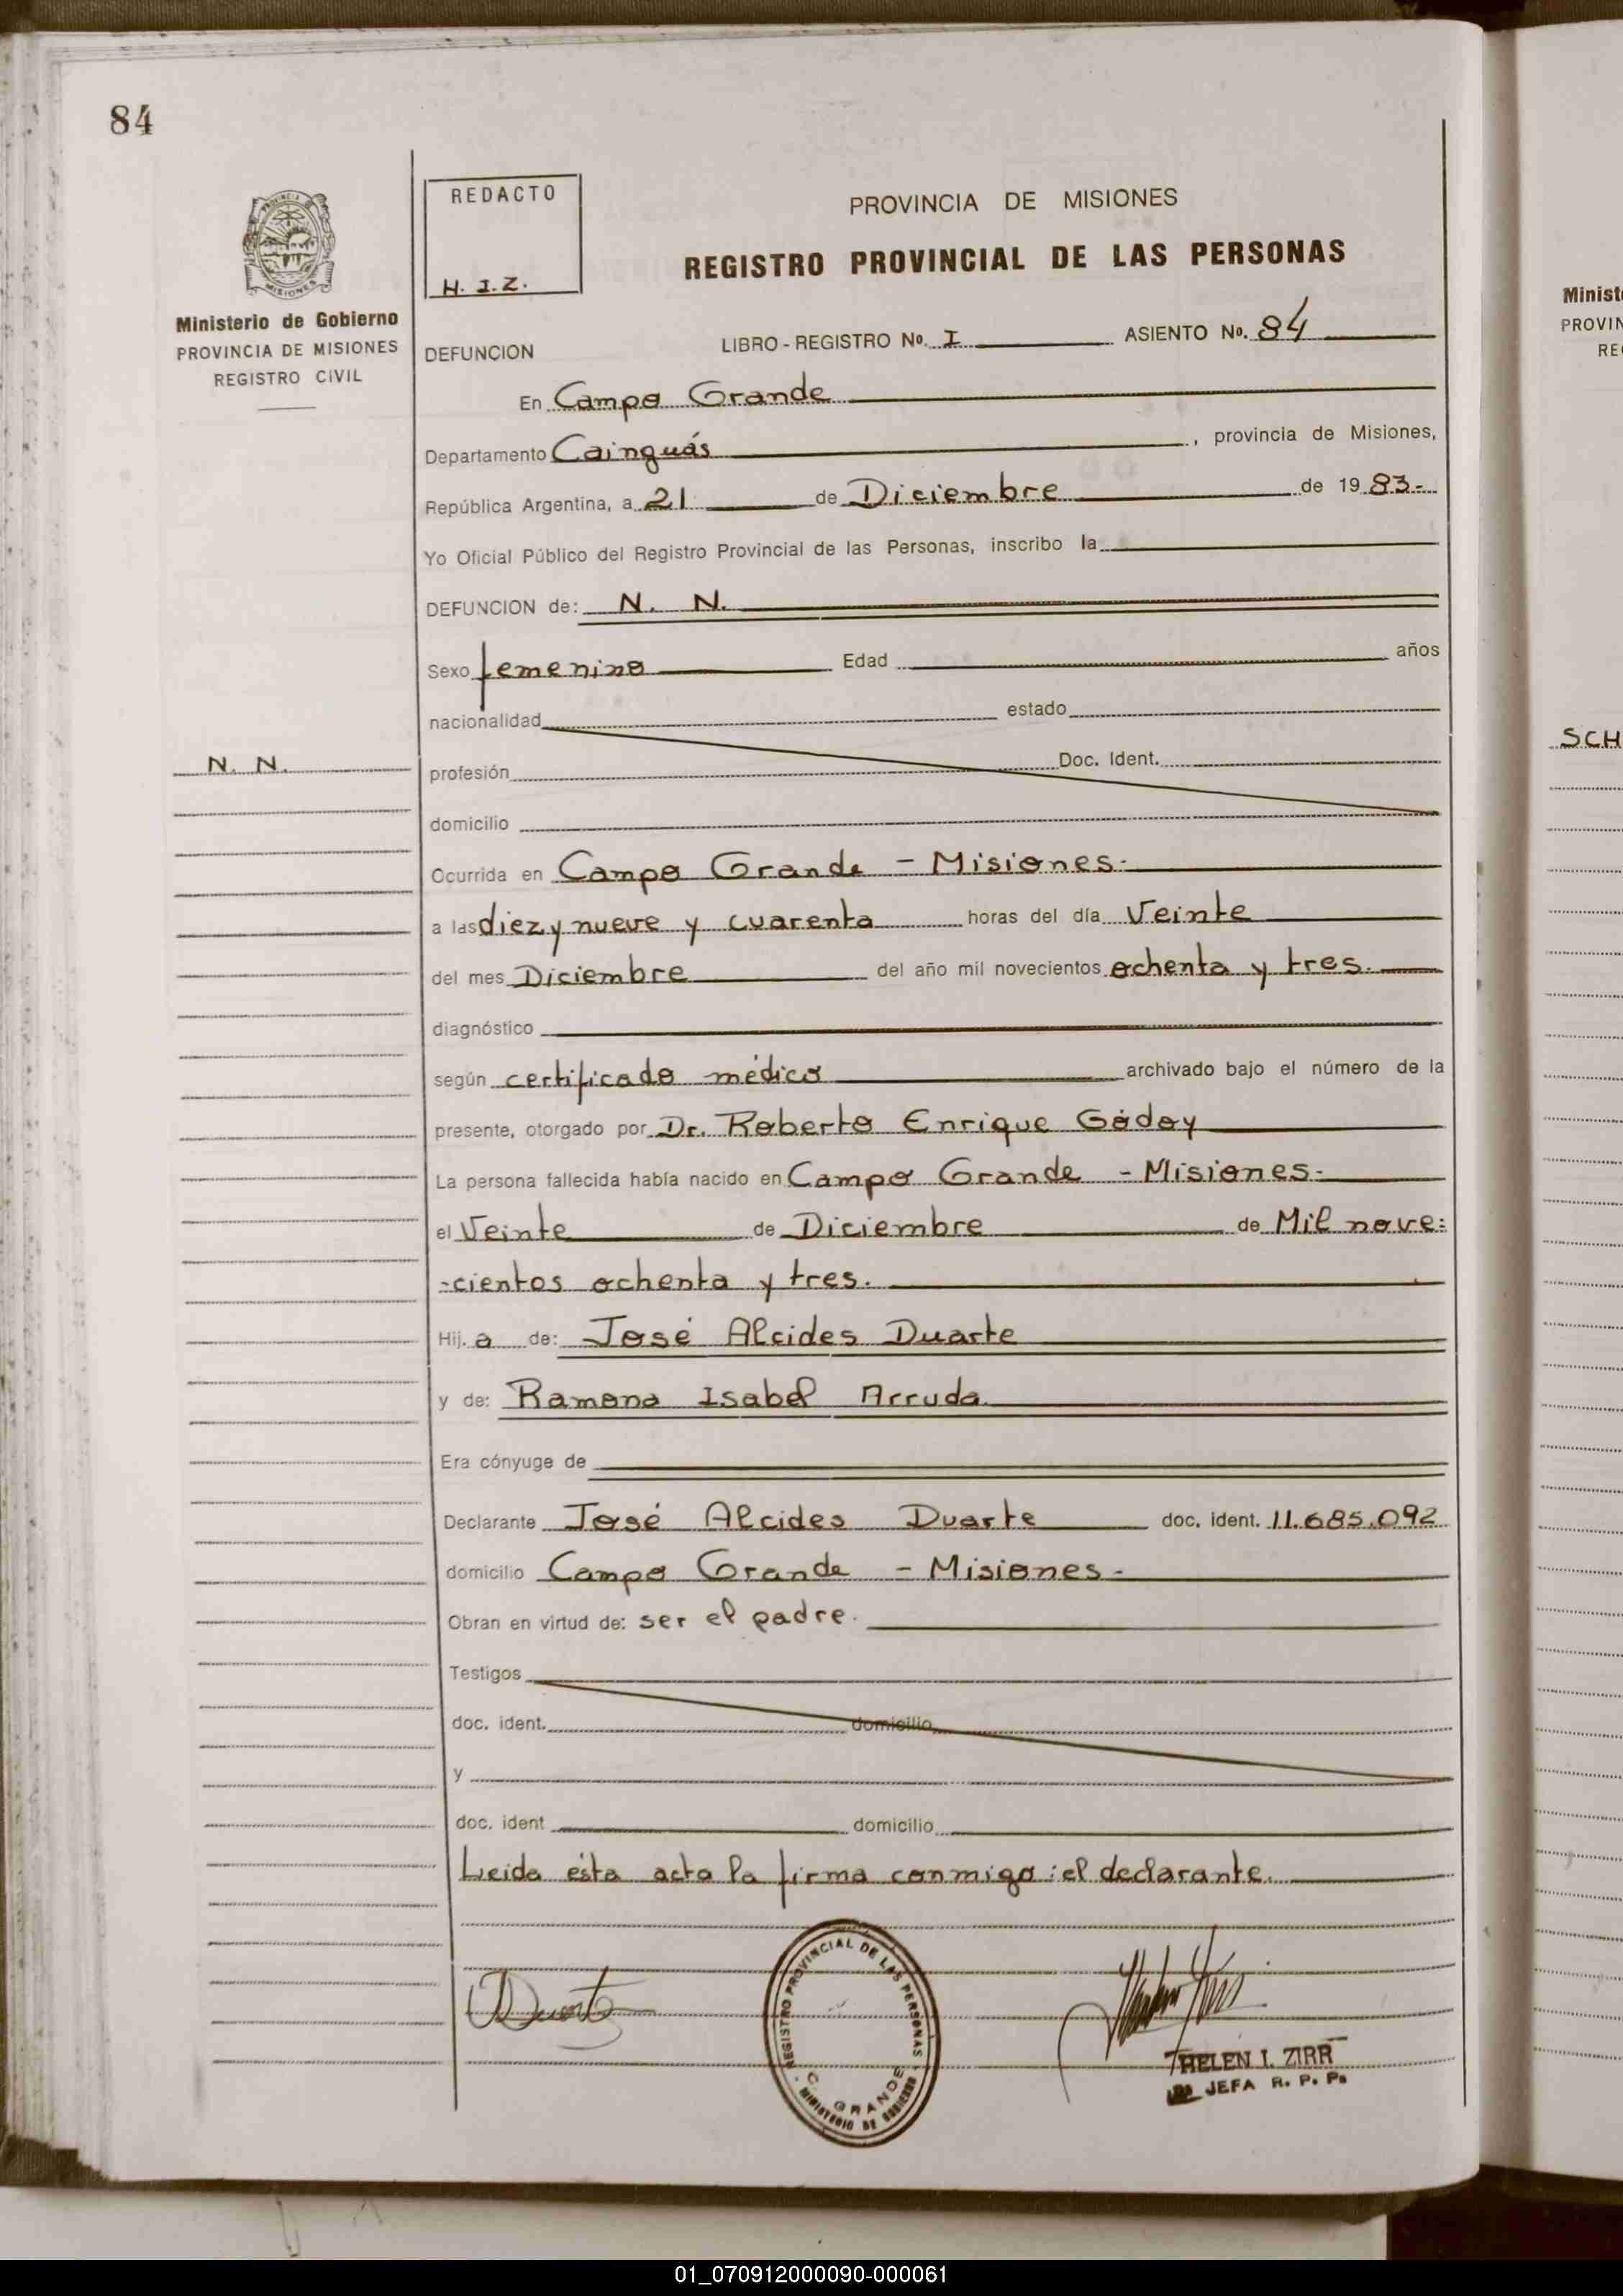 84
REDACTO
H. I. Z.
PROVINCIA DE MISIONES
REGISTRO PROVINCIAL DE LAS PERSONAS
Ministerio de Gobierno
PROVINCIA DE MISIONES
REGISTRO CIVIL
DEFUNCION LIBRO - REGISTRO No. I ASIENTO No. 84
En Campo Grande
Departamento Cainguás, provincia de Misiones,
República Argentina, a 21 de Diciembre de 1983-
Yo Oficial Público del Registro Provincial de las Personas, inscribo la
DEFUNCION de: N. N.
Sexo femenino Edad años
nacionalidad estado
N. N.
profesión Doc. Ident.
domicilio
Ocurrida en Campo Grande - Misiones-
a las diez y nueve y cuarenta horas del día Veinte
del mes Diciembre del año mil novecientos ochenta y tres.
diagnóstico
según certificado médico archivado bajo el número de la
presente, otorgado por Dr. Roberto Enrique Gódoy
La persona fallecida había nacido en Campo Grande - Misiones-
el Veinte de Diciembre de Mil nove=
=cientos ochenta y tres.
Hij.a de: José Alcides Duarte
y de: Ramona Isabel Arruda
Era cónyuge de
Declarante José Alcides Duarte doc. ident. 11.685.092
domicilio Campo Grande - Misiones-
Obran en virtud de: ser el padre.
Testigos
doc. ident. domicilio
y
doc. ident domicilio
Leida ésta acta la firma conmigo: el declarante.
Duarte
REGISTRO PROVINCIAL DE LAS PERSONAS
C. GRANDE
MINISTERIO DE GOBIERNO
HELEN I. ZIRR
JEFA R. P. P.
Minist
PROVIN
RE
SCH
01_070912000090-000061